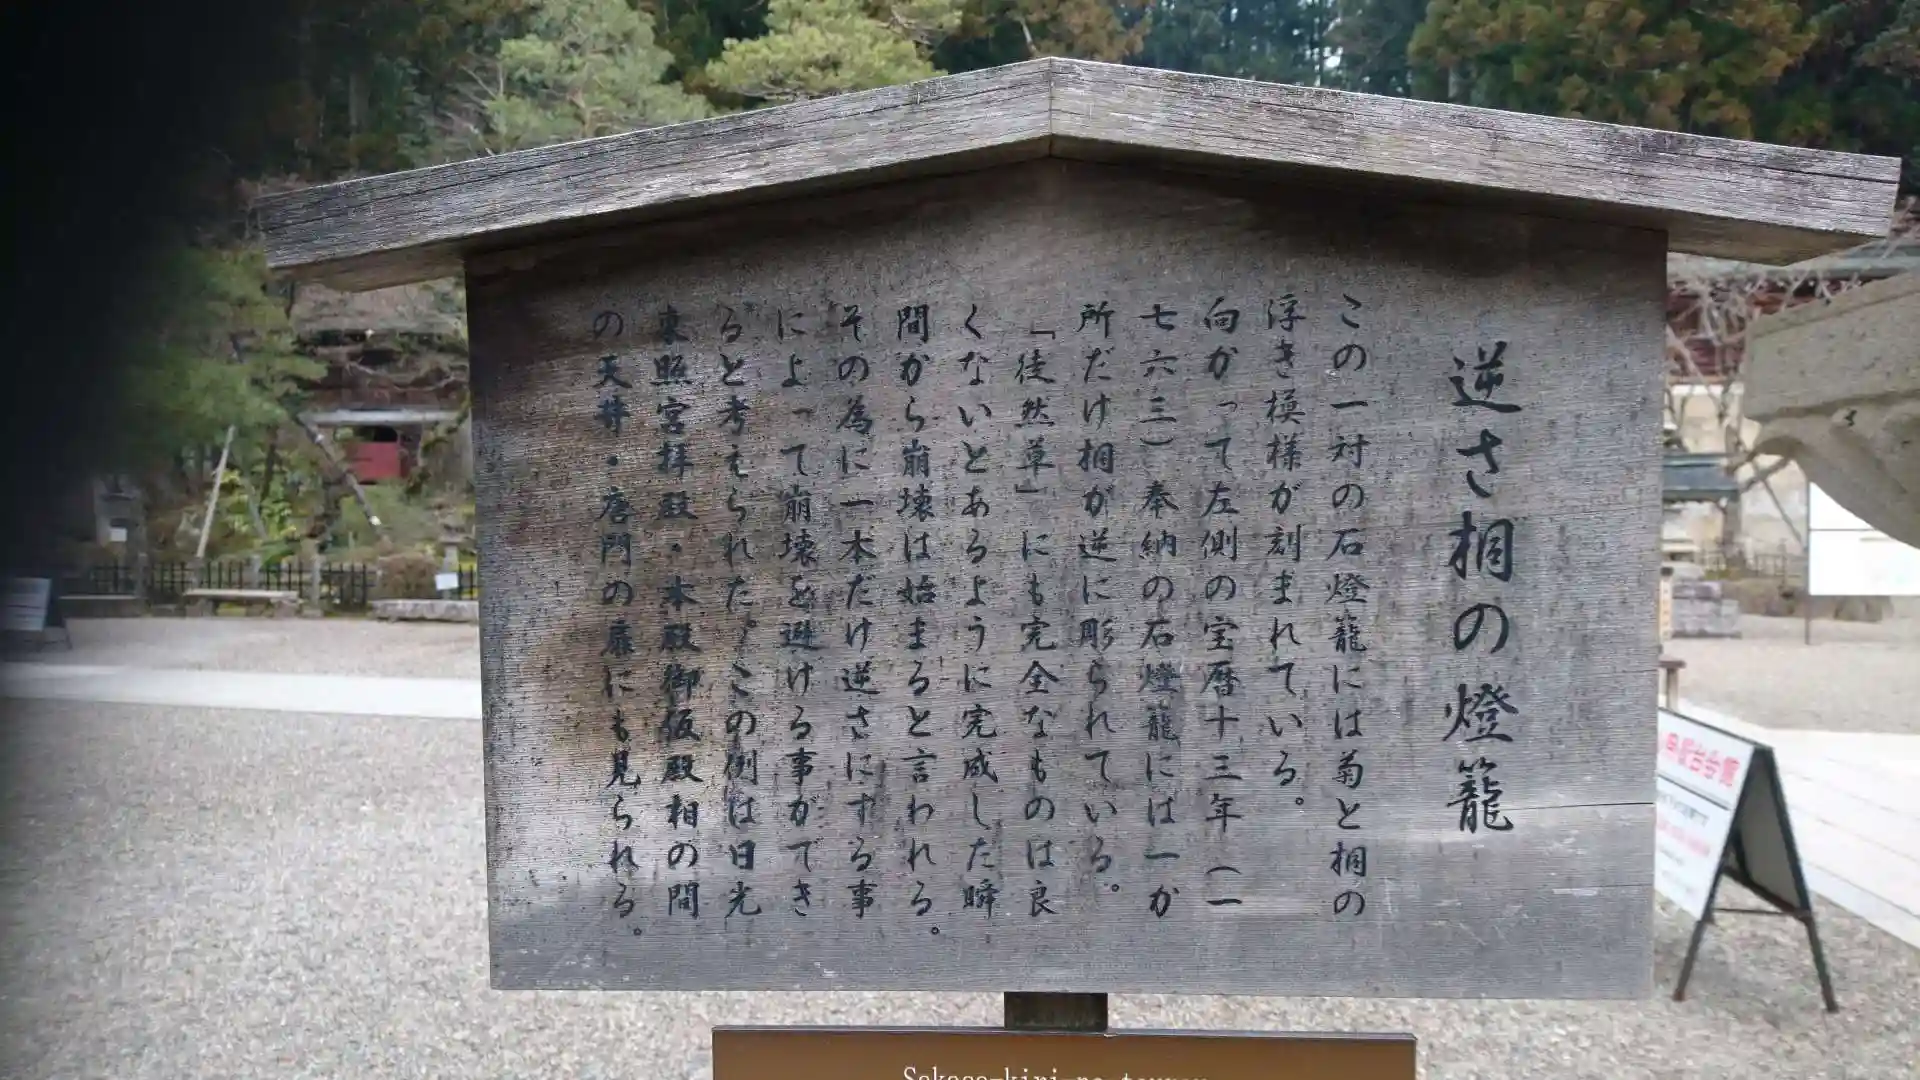 逆さ桐の燈籠
この一対の石燈籠には菊と桐の
浮き模様が刻まれている。
向かって左側の宝暦十三年（一
七六三）奉納の石燈籠には一か
所だけ桐が逆に彫られている。
「徒然草」にも完全なものは良
くないとあるように完成した瞬
間から崩壊は始まると言われる。
その為に一本だけ逆さにする事
によって崩壊を避ける事ができ
ると考えられた。この例は日光
東照宮拝殿・本殿御仮殿相の間
の天井・唐門の扉にも見られる。